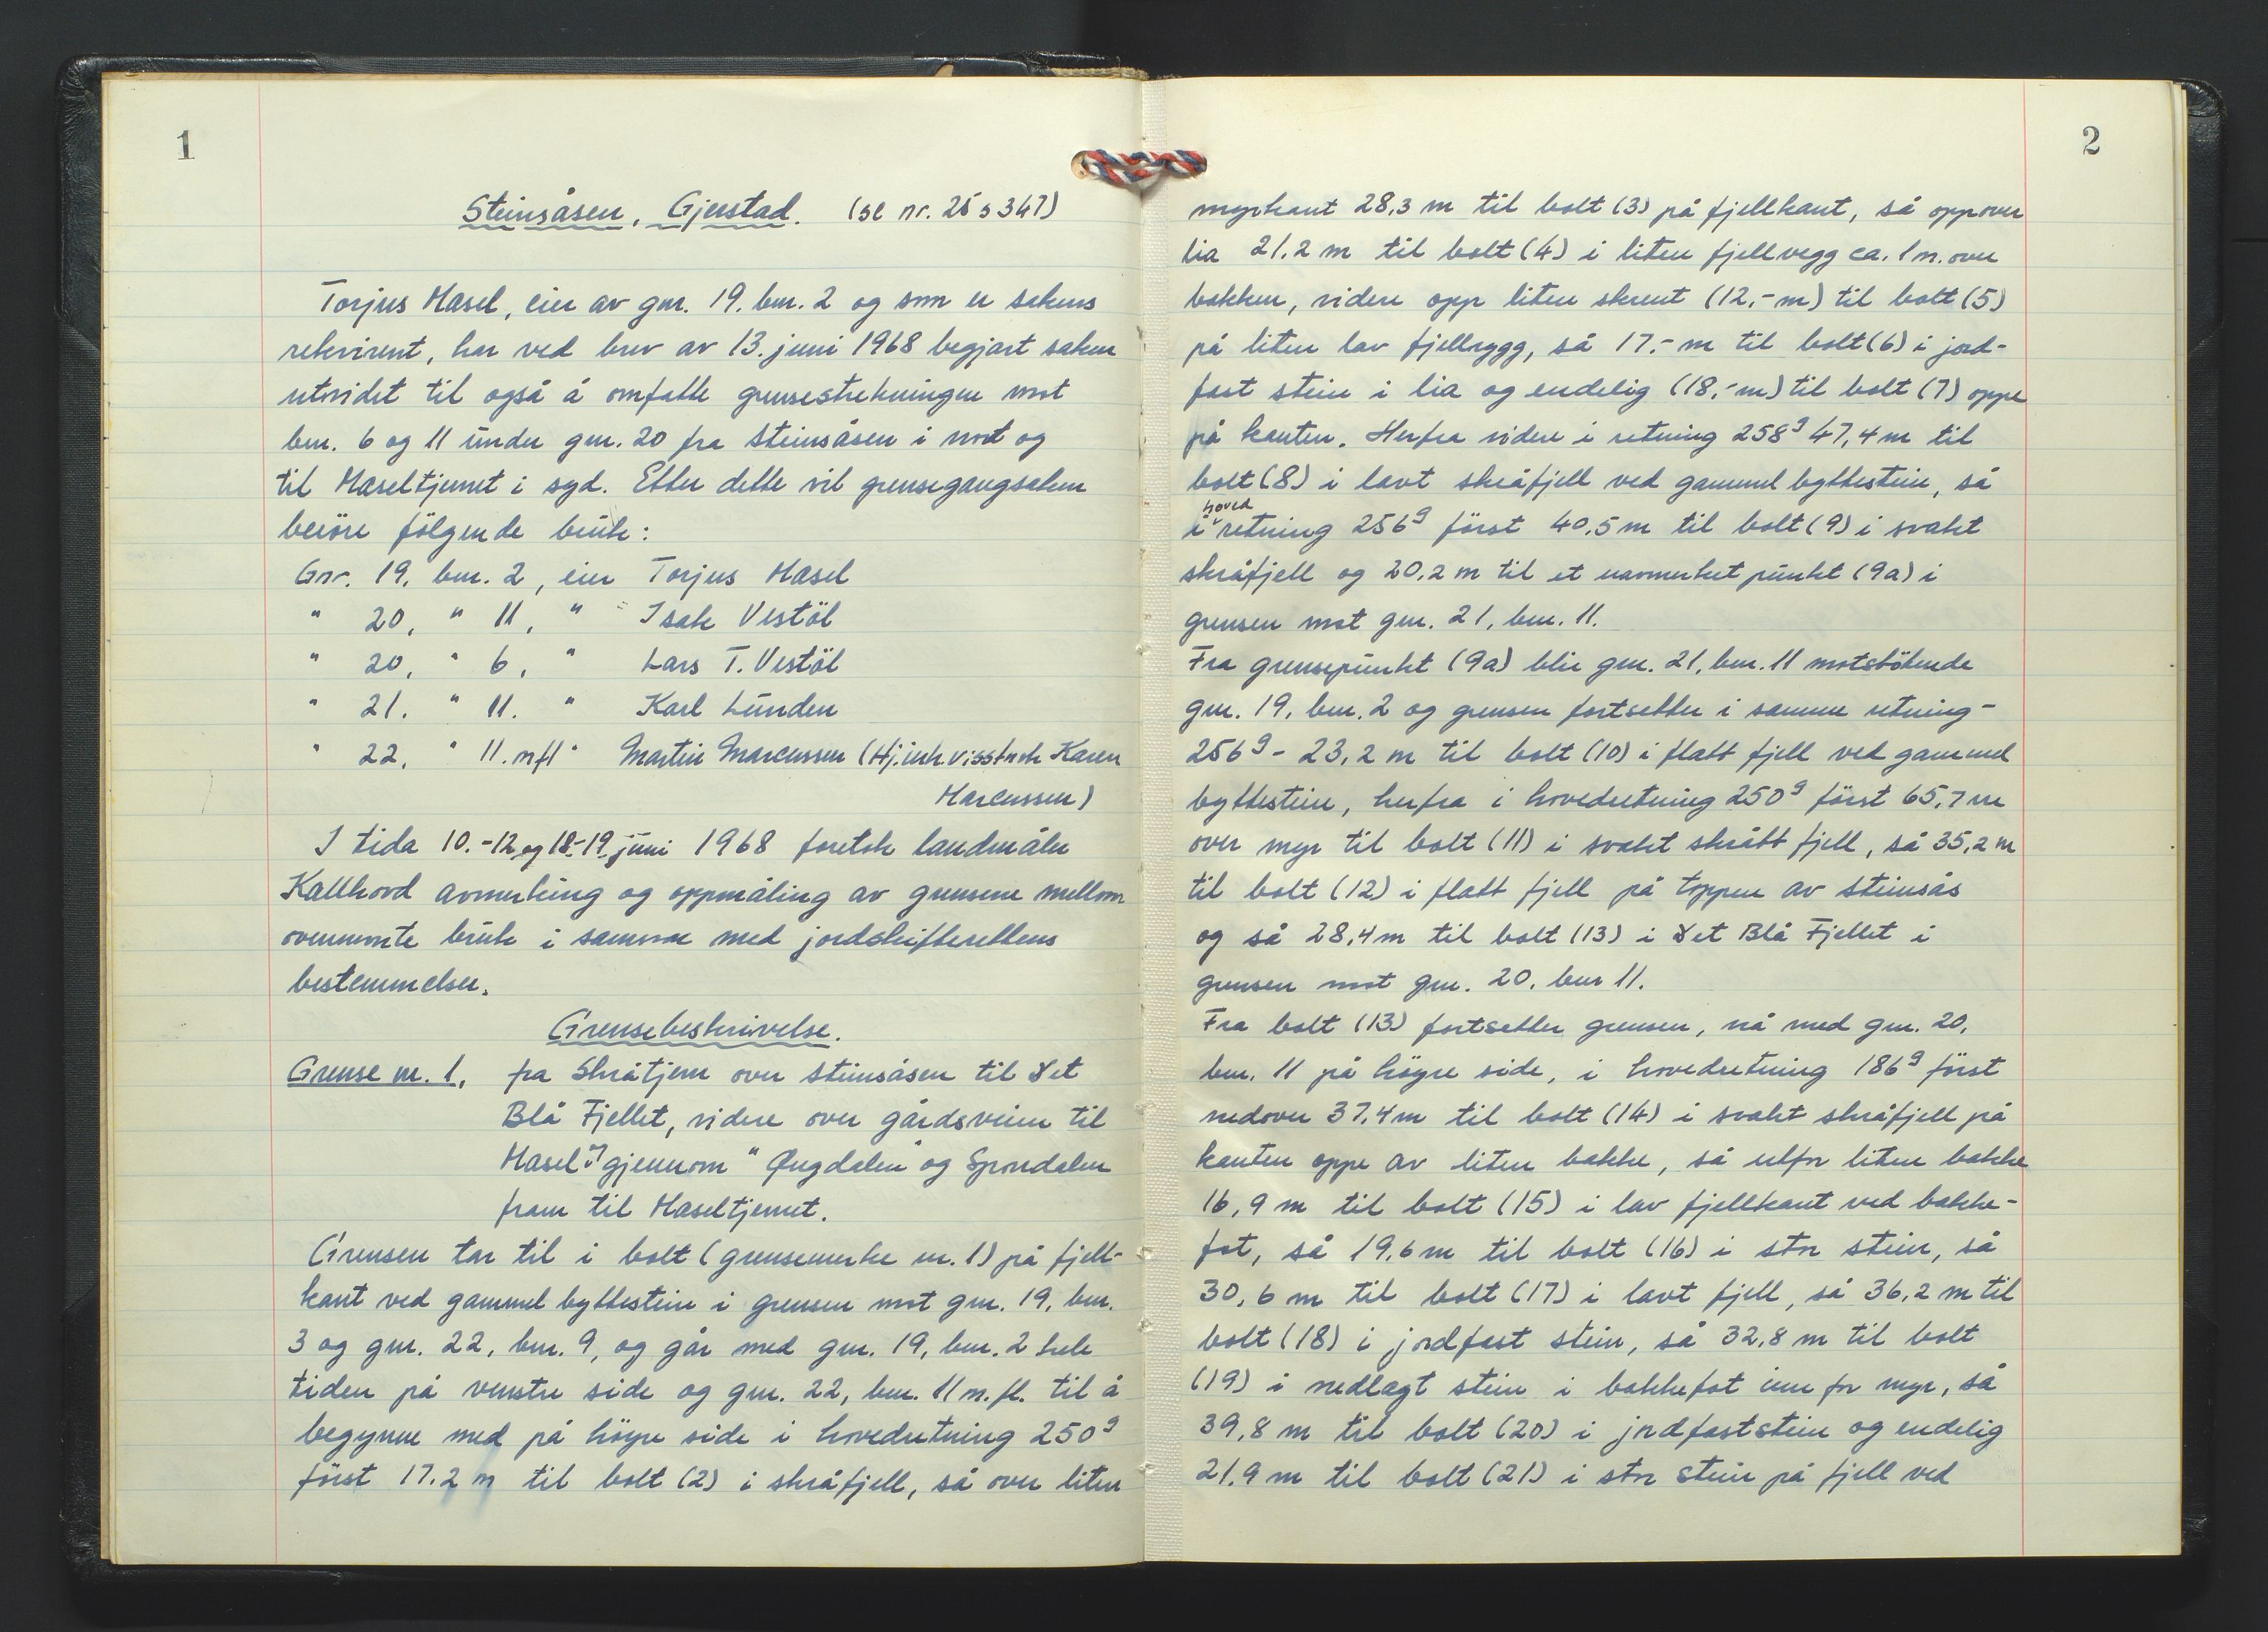 1
Steinsåsen, Gjerstad. (se nr. 25 s 347)
Torjus Masel, eier av gnr. 19. bnr. 2 og som er sakens
rekvirent, har ved brev av 13. juni 1968 begjært saken
utvidet til også å omfatte grensestrekningen mot
bnr. 6 og 11 under gnr. 20 fra Steinsåsen i nord og
til Maseltjernet i syd. Etter dette vil grensegangsaken
berøre følgende bruk:
Gnr. 19, bnr. 2, eier Torjus Masel
" 20, " 11, " Isak Vestöl
" 20, " 6, " Lars T. Vestöl
" 21. " 11. " Karl Lunden
" 22, " 11. mfl " Martin Marcussen (Hj.innh. visstnok Karen
Marcussen)
I tida 10.-12 og 18.-19. juni 1968 foretok landmåler
Kallhovd avmerking og oppmåling av grensene mellom
ovennevnte bruk i samsvar med jordskifterettens
bestemmelser.
Grensebeskrivelse.
Grense nr. 1. fra Skråtjern over Steinsåsen til Det
Blå Fjellet, videre over gårdsveien til
Masel og gjennom "Øygdalen" og Spordalen
fram til Maseltjernet.
Grensen tar til i bolt (grensemerke nr. 1) på fjell-
kant ved gammel byttestein i grensen mot gnr. 19, bnr.
3 og gnr. 22, bnr. 9, og går med gnr. 19, bnr. 2 hele
tiden på venstre side og gnr. 22, bnr. 11 m.fl. til å
begynne med på höyre side i hovedretning 250g
först 17.2 m til bolt (2) i skråfjell, så over liten
2
myrkant 28,3 m til bolt (3) på fjellkant, så oppover
lia 21,2 m til bolt (4) i liten fjellvegg ca. 1 m. over
bakken, videre opp liten skrent (12,- m) til bolt (5)
på liten lav fjellrygg, så 17.- m til bolt (6) i jord-
fast stein i lia og endelig (18,- m) til bolt (7) oppe
på kanten. Herfra videre i retning 258g 47,4 m til
bolt (8) i lavt skråfjell ved gammel byttestein, så
i hovedretning 256g först 40,5 m til bolt (9) i svakt
skråfjell og 20,2 m til et uavmerket punkt (9a) i
grensen mot gnr. 21, bnr. 11.
Fra grensepunkt (9a) blir gnr. 21, bnr. 11 motstötende
gnr. 19, bnr. 2 og grensen fortsetter i samme retning -
256g - 23,2 m til bolt (10) i flatt fjell ved gammel
byttestein, herfra i hovedretning 250g först 65,7 m
over myr til bolt (11) i svakt skrått fjell, så 35,2 m
til bolt (12) i flatt fjell på toppen av Steinsås
og så 28,4 m til bolt (13) i Det Blå Fjellet i
grensen mot gnr. 20, bnr 11.
Fra bolt (13) fortsetter grensen, nå med gnr. 20,
bnr. 11 på höyre side, i hovedretning 186g först
nedover 37,4 m til bolt (14) i svakt skråfjell på
kanten oppe av liten bakke, så utfor liten bakke
16,9 m til bolt (15) i lav fjellkant ved bakke-
fot, så 19,6 m til bolt (16) i stor stein, så
30,6 m til bolt (17) i lavt fjell, så 36,2 m til
bolt (18) i jordfast stein, så 32,8 m til bolt
(19) i nedlagt stein i bakkefot inn for myr, så
39,8 m til bolt (20) i jordfaststein og endelig
21,9 m til bolt (21) i stor stein på fjell ved